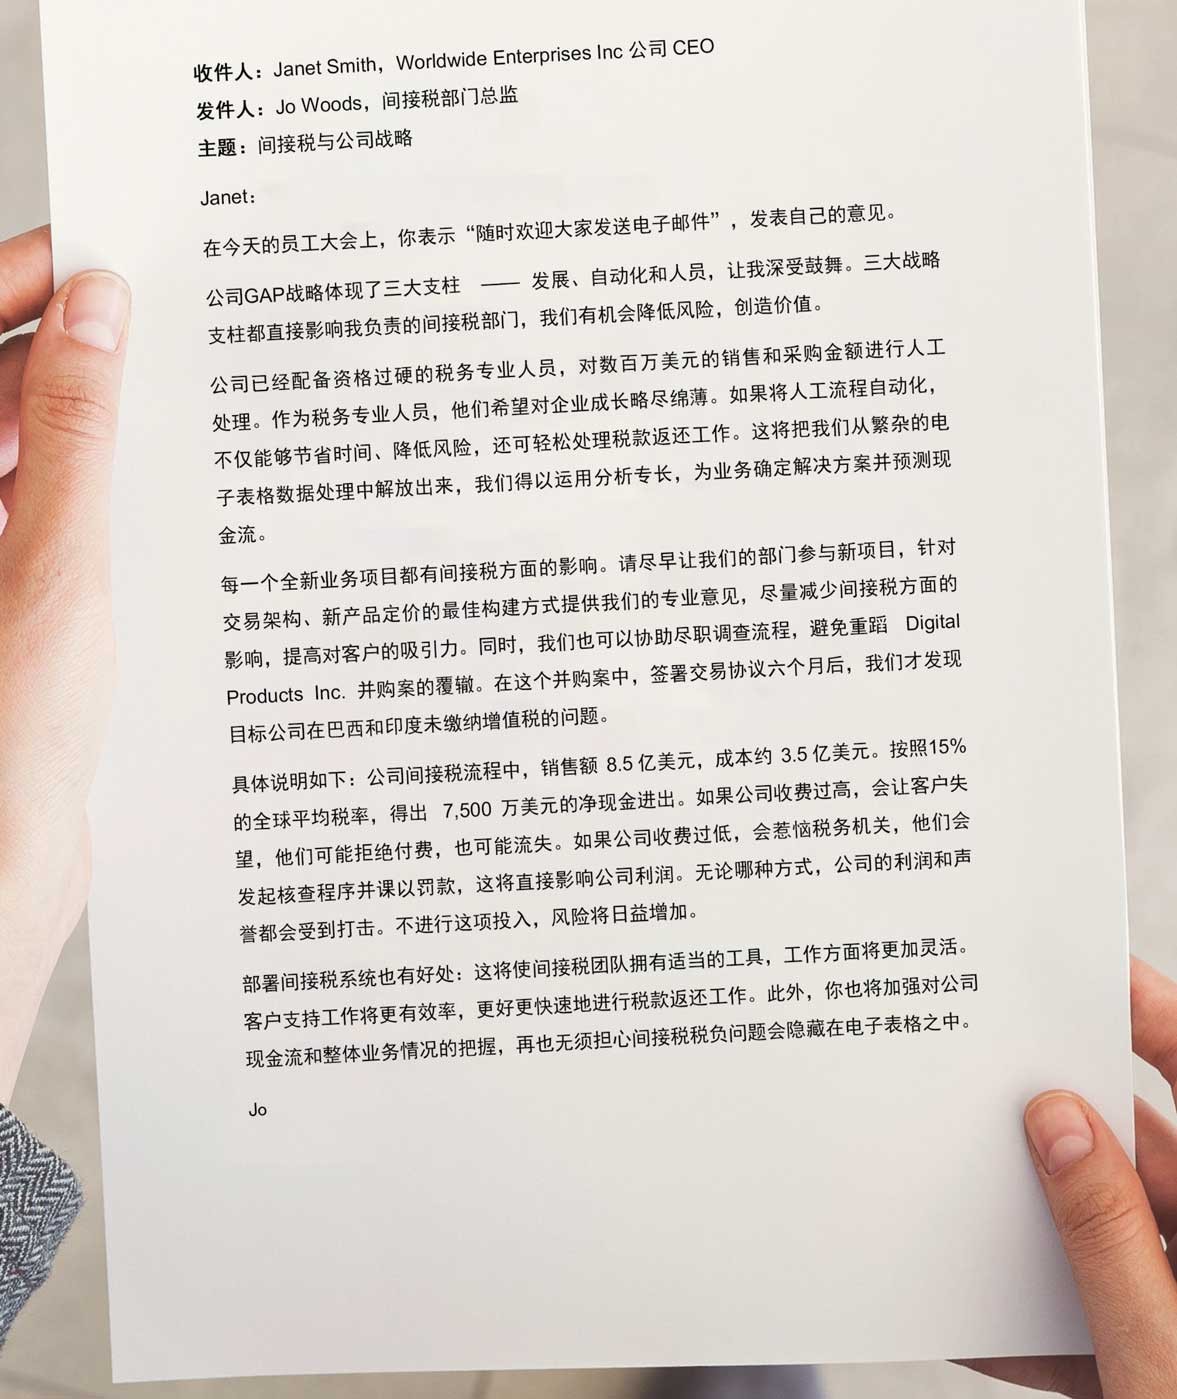 收件人：Janet Smith，Worldwide Enterprises Inc 公司 CEO
发件人：Jo Woods，间接税部门总监
主题：间接税与公司战略
Janet：
在今天的员工大会上，你表示“随时欢迎大家发送电子邮件”，发表自己的意见。
公司GAP战略体现了三大支柱 —— 发展、自动化和人员，让我深受鼓舞。三大战略
支柱都直接影响我负责的间接税部门，我们有机会降低风险，创造价值。
公司已经配备资格过硬的税务专业人员，对数百万美元的销售和采购金额进行人工
处理。作为税务专业人员，他们希望对企业成长略尽绵薄。如果将人工流程自动化，
不仅能够节省时间、降低风险，还可轻松处理税款返还工作。这将把我们从繁杂的电
子表格数据处理中解放出来，我们得以运用分析专长，为业务确定解决方案并预测现
金流。
每一个全新业务项目都有间接税方面的影响。请尽早让我们的部门参与新项目，针对
交易架构、新产品定价的最佳构建方式提供我们的专业意见，尽量减少间接税方面的
影响，提高对客户的吸引力。同时，我们也可以协助尽职调查流程，避免重蹈 Digital
Products Inc. 并购案的覆辙。在这个并购案中，签署交易协议六个月后，我们才发现
目标公司在巴西和印度未缴纳增值税的问题。
具体说明如下：公司间接税流程中，销售额 8.5 亿美元，成本约 3.5 亿美元。按照15%
的全球平均税率，得出 7,500 万美元的净现金进出。如果公司收费过高，会让客户失
望，他们可能拒绝付费，也可能流失。如果公司收费过低，会惹恼税务机关，他们会
发起核查程序并课以罚款，这将直接影响公司利润。无论哪种方式，公司的利润和声
誉都会受到打击。不进行这项投入，风险将日益增加。
部署间接税系统也有好处：这将使间接税团队拥有适当的工具，工作方面将更加灵活。
客户支持工作将更有效率，更好更快速地进行税款返还工作。此外，你也将加强对公司
现金流和整体业务情况的把握，再也无须担心间接税税负问题会隐藏在电子表格之中。
Jo